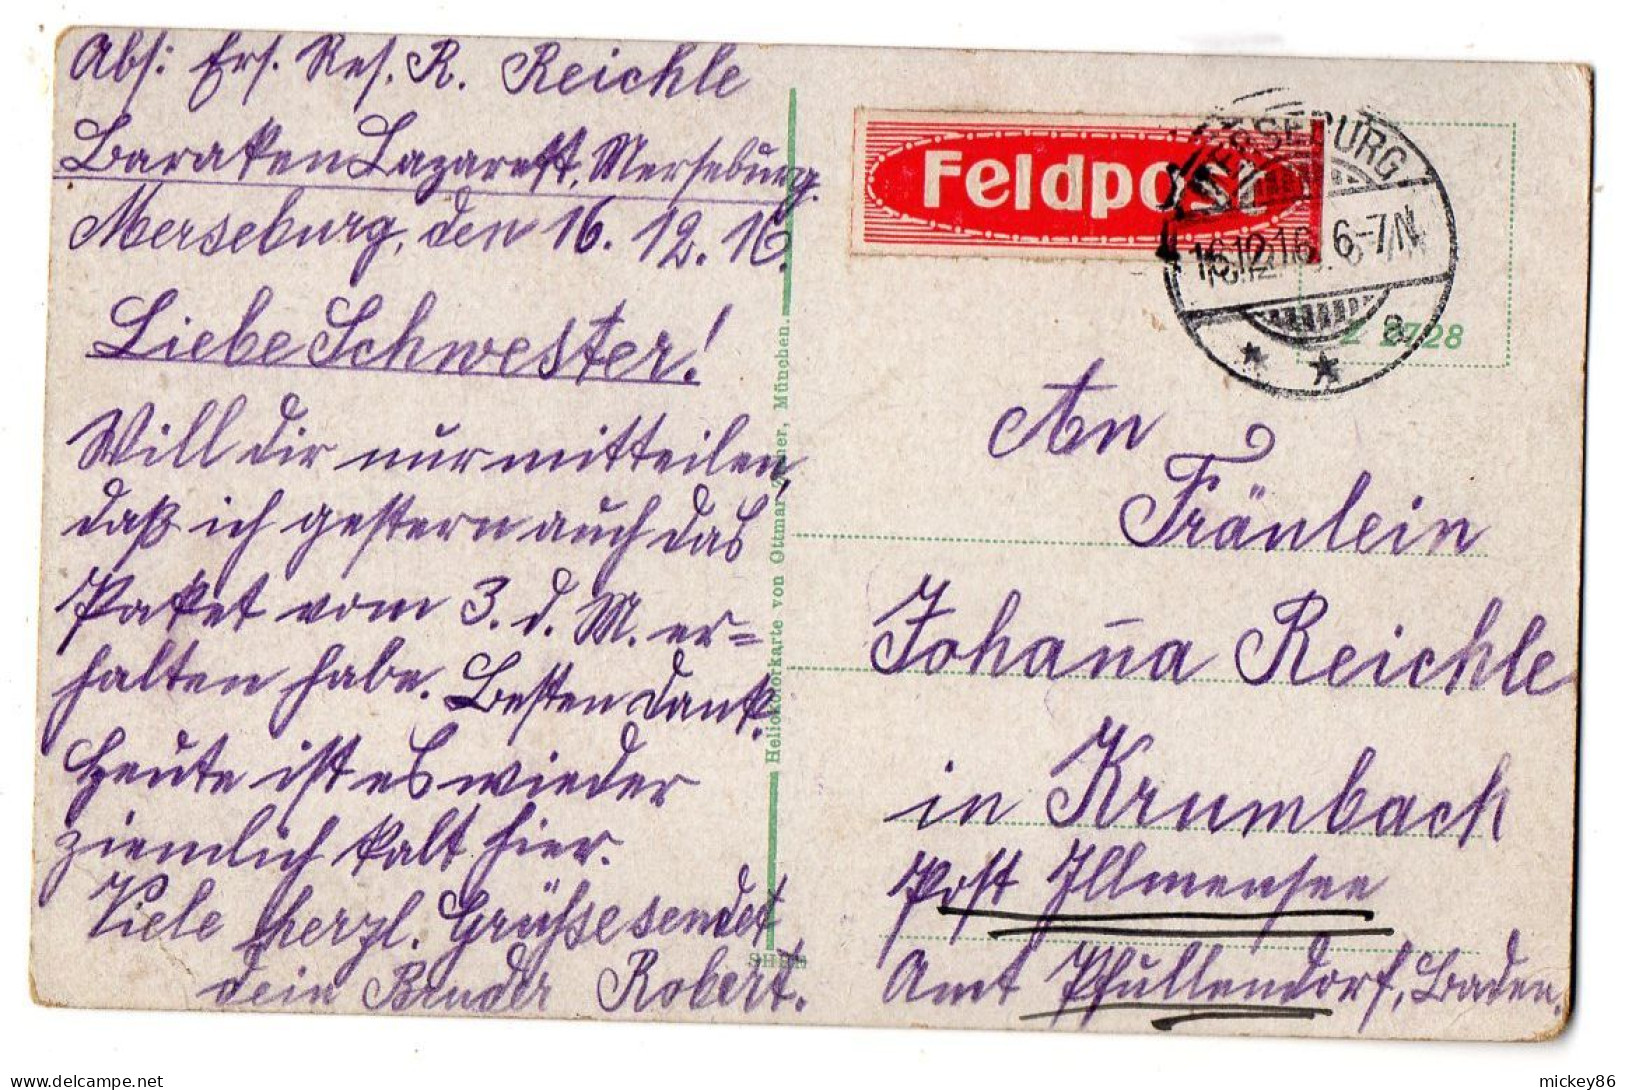 Abs: Ers. Res. R. Reichle
Baraken Lazarett, Merseburg.
Merseburg, den 16. 12. 16.
Liebe Schwester!
Will dir nur mitteilen,
daß ich gestern auch das
Paket vom 3. d. M. er=
halten habe. Besten Dank.
Heute ist es wieder
ziemlich kalt hier.
Viele herzl. Grüsse sendet
dein Bruder Robert.
Heliokolorkarte von Ottmar Zieher, München.
Feldpost
MERSEBURG
16.12.16. 6-7N
a
Z 2728
An
Fräulein
Johana Reichle
in Krumbach
Post Illmensee
Amt Pfullendorf, Baden.
mickey86